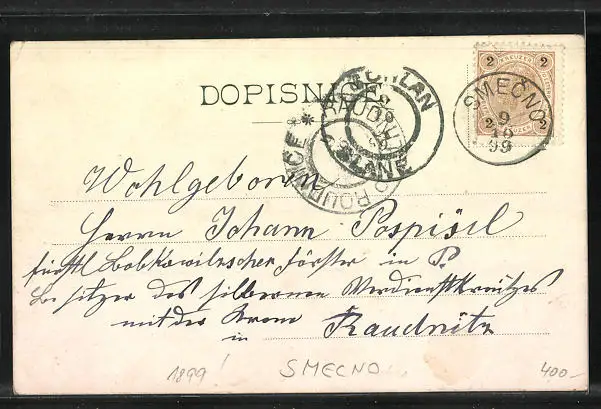 DOPISNICE
SCHLAN
SLANÝ
RAUDNITZ
ROUDNICE
2 KREUZER 2
2 2
SMEČNO
9
10
99
Wohlgeboren
Herrn Johann Pospíšil
fürstl Lobkowitzscher Förster in P.
Besitzer des silbernen Verdienstkreutzes
mit der Krone
in Raudnitz
1899! SMECNO 400-